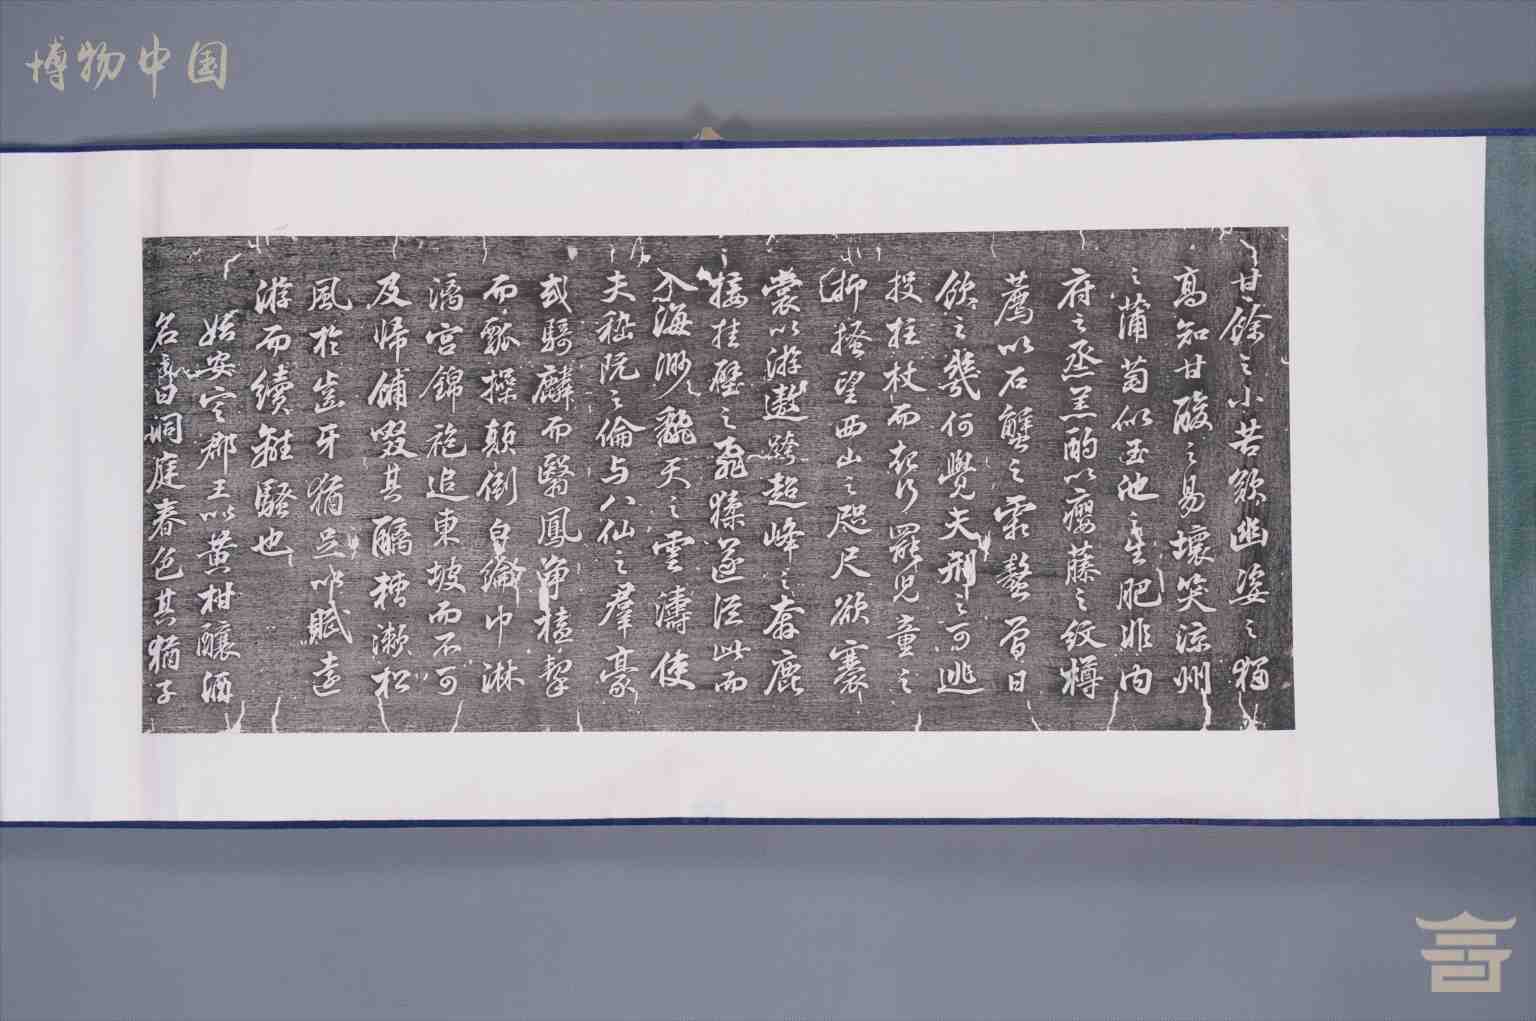 博物中国
甘餘之小苦歎幽姿之獨
高知甘酸之易壞笑涼州
之蒲萄似玉池之生肥非内
府之烝羔酌以癭藤之紋樽
薦以石蟹之霜螯曾日
飲之幾何覺天刑之可逃
投拄杖而起行罷兒童之
抑搔望西山之咫尺欲褰
裳以游遨跨超峰之奔鹿
接挂壁之飛猱遂從此而
入海渺翻天之雲濤使
夫嵇阮之倫与八仙之羣豪
或騎麟而翳鳳爭榼挈
而瓢操顛倒白綸巾淋
漓宮錦袍追東坡而不可
及歸餔歠其醨糟漱松
風於齒牙猶足以賦遠
游而續離騷也
始安定郡王以黃柑釀酒
名之曰洞庭春色其猶子